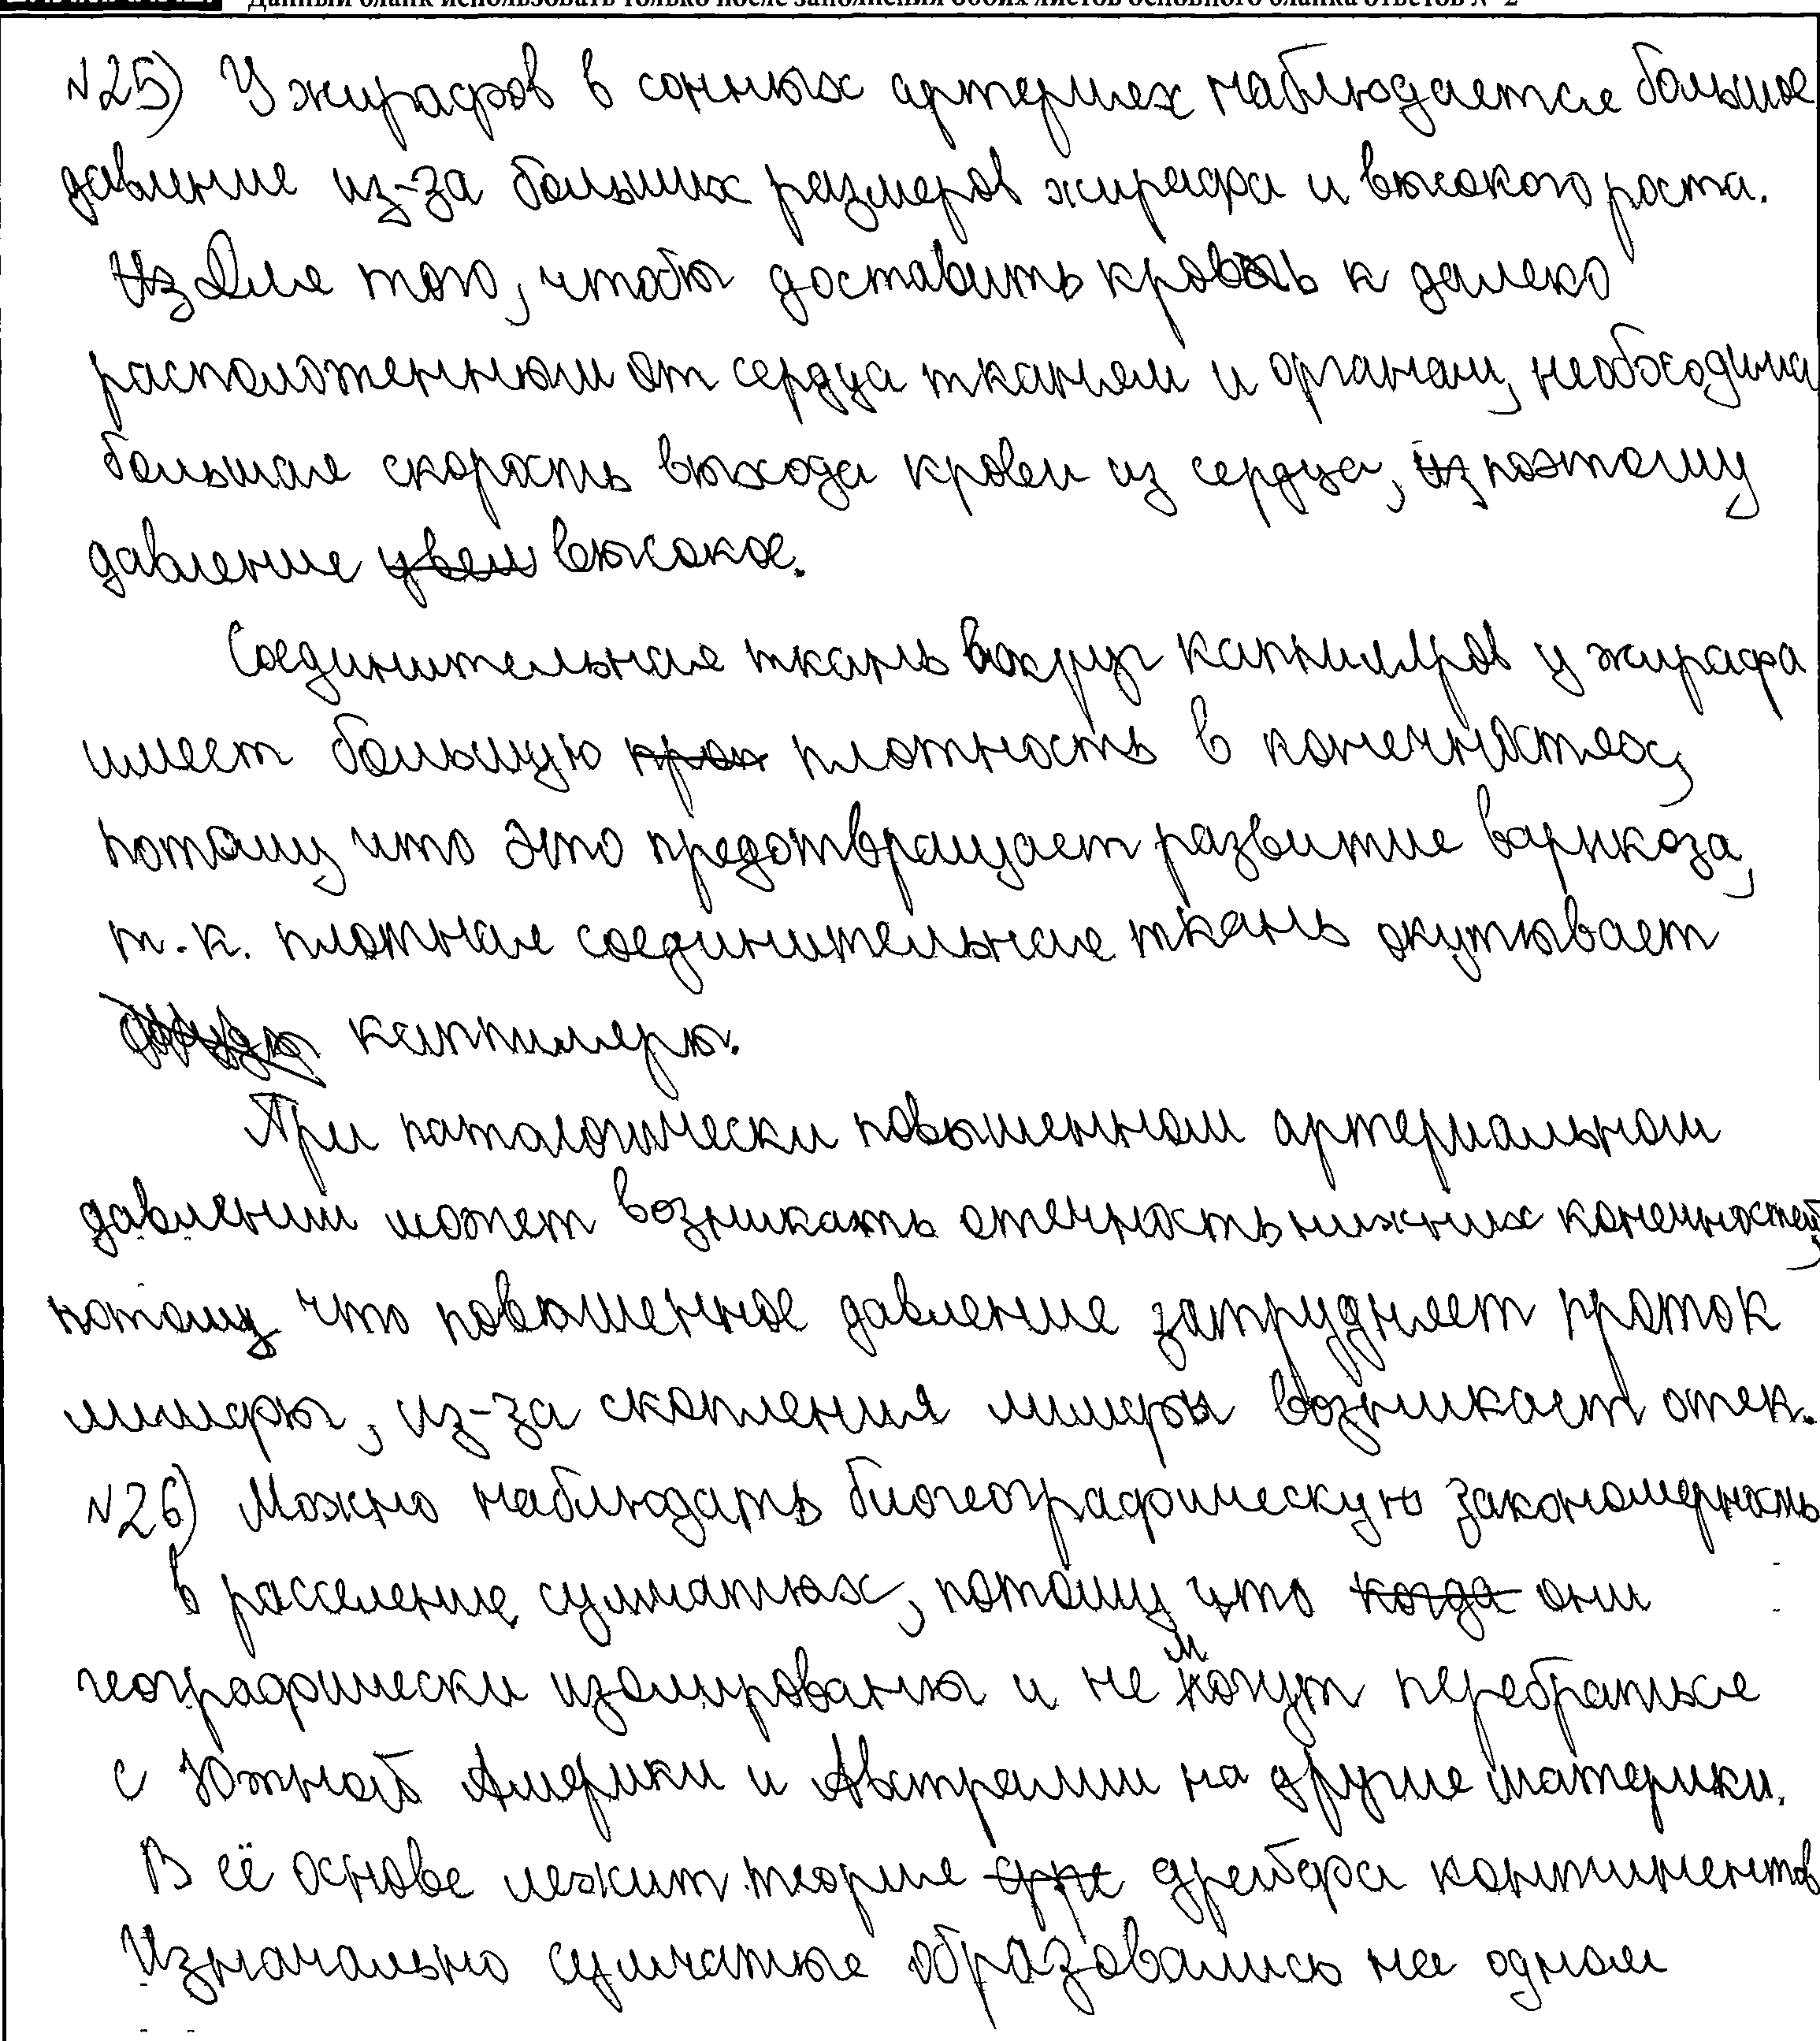 Данный бланк использовать только после заполнения обоих листов основного бланка ответов № 2
№25) У жирафов в сонных артериях наблюдается большое
давление из-за больших размеров жирафа и высокого роста.
Из Для того, чтобы доставить кровь к далеко
расположенным от сердца тканям и органам, необходима
большая скорость выхода крови из сердца, из поэтому
давление увел высокое.
Соединительная ткань вокруг капилляров у жирафа
имеет большую проп плотность в конечностях,
потому что это предотвращает развитие варикоза,
т.к. плотная соединительная ткань окутывает
капилляры.
При патологически повышенном артериальном
давлении может возникать отечность нижних конечностей,
потому что повышенное давление затрудняет проток
лимфы, из-за скопления лимфы возникает отек.
№26) Можно наблюдать биогеографическую закономерность
в расселение сумчатых, потому что когда они
географически изолированы и не могут перебраться
с Южной Америки и Австралии на другие материки.
В её основе лежит теория дрейфа континентов
Изначально сумчатые образовались на одном